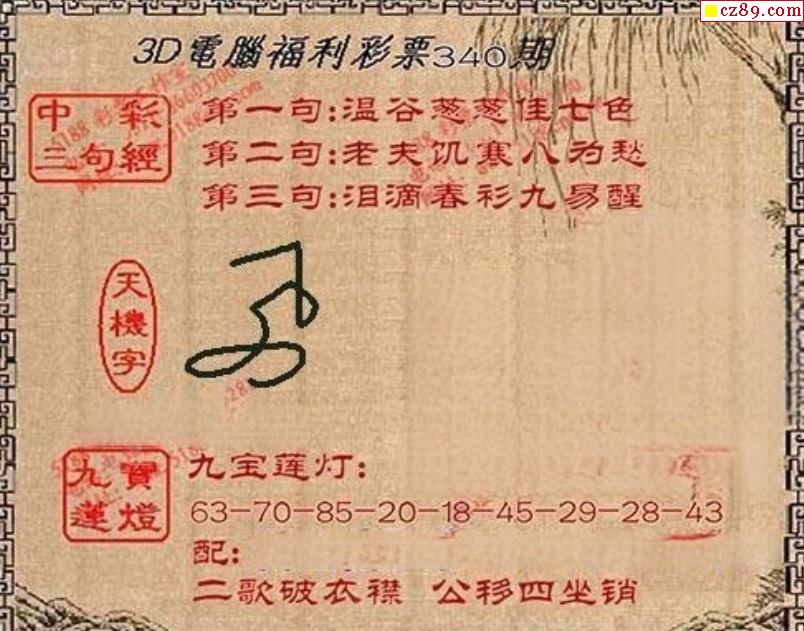 cz89.com
3D電腦福利彩票340期
中彩
三句經
第一句:温谷葱葱佳七色
第二句:老夫饥寒八为愁
第三句:泪滴春衫九易醒
天機字
九寶
蓮燈
九宝莲灯:
63-70-85-20-18-45-29-28-43
配:
二歌破衣襟 公移四坐销